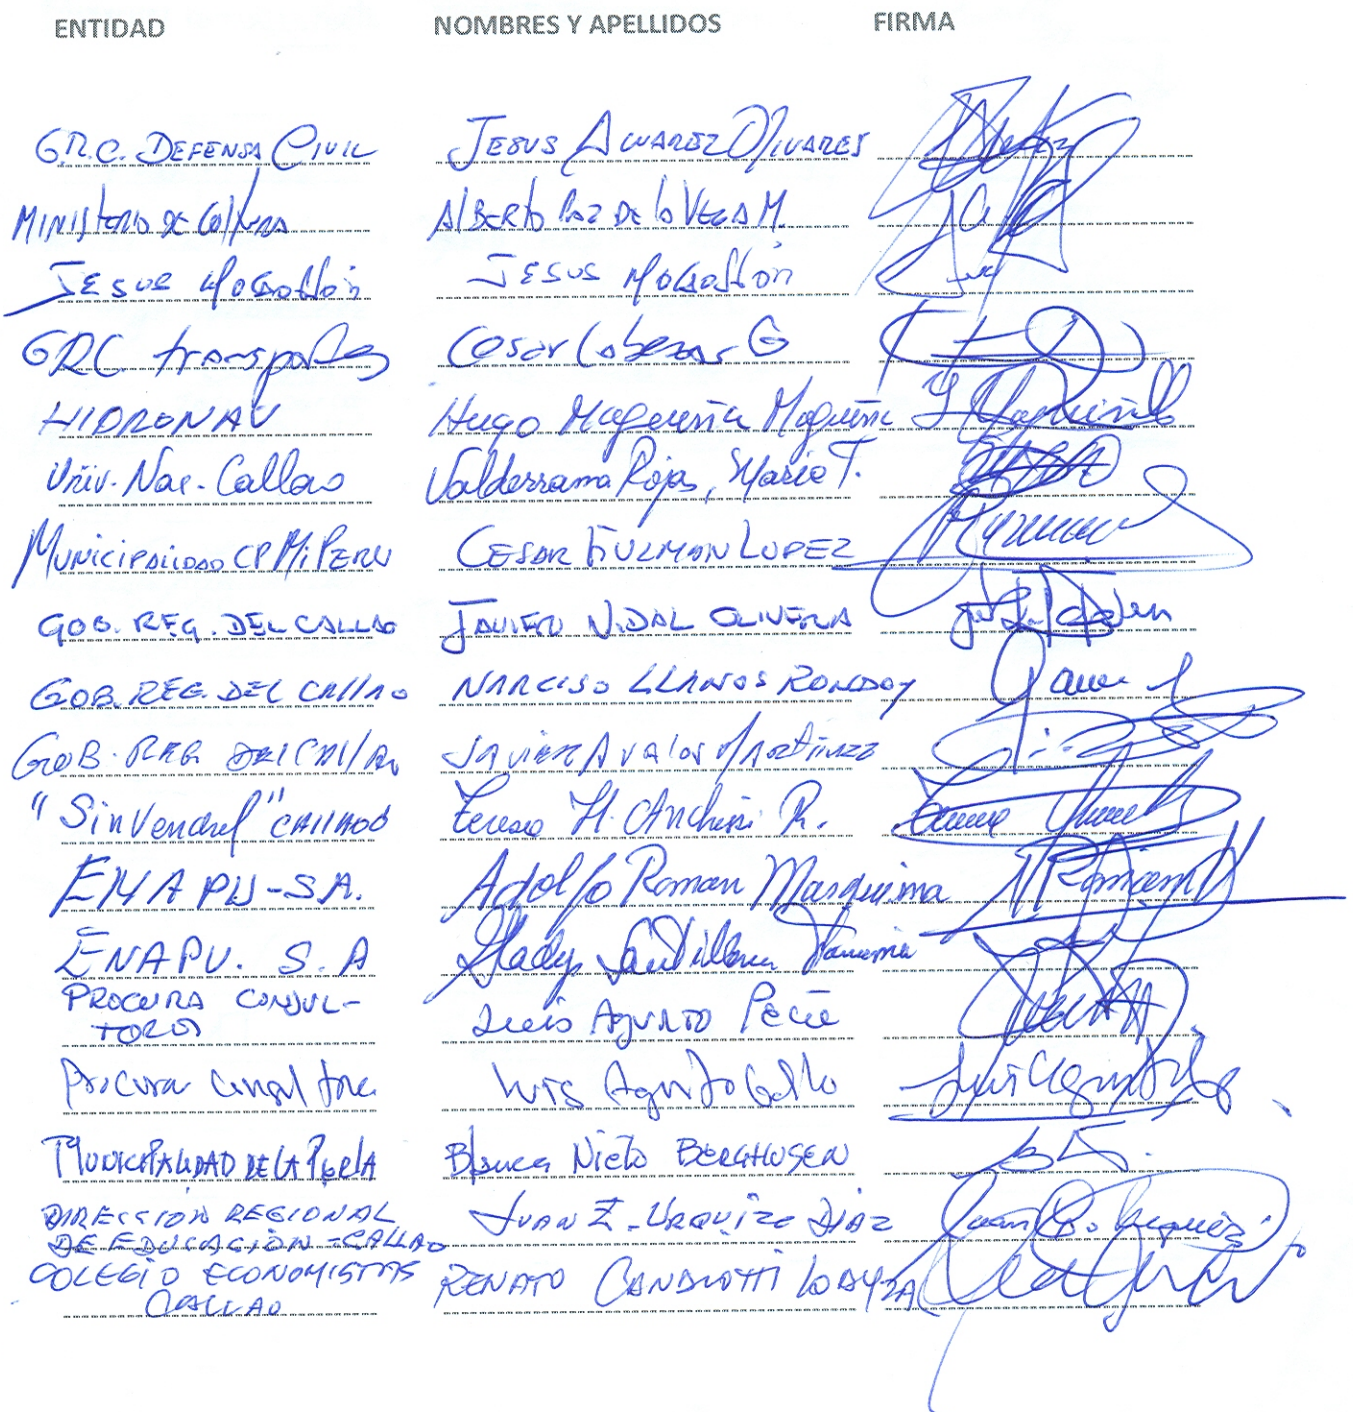 ENTIDAD NOMBRES Y APELLIDOS FIRMA
G.R.C. DEFENSA CIVIL JESUS ALVAREZ OLIVARES
MINISTERIO DE CULTURA ALBERTO PAZ DE LA VEGA M.
JESUS MOGOLLÓN JESUS MOGOLLÓN
GRC transportes Cesar Cabezas G
HIDRONAV Hugo Magueiña Magueiña
Univ. Nac. Callao Valderrama Rojas, Mario T.
MUNICIPALIDAD CP MI PERU CESAR GUZMAN LOPEZ
GOB. REG. DEL CALLAO JAVIER VIDAL OLIVERA
GOB. REG. DEL CALLAO NARCISO LLANOS RONDOY
GOB. REG. DEL CALLAO JAVIER AVALOS MARTINEZ
CALLAO Teresa H. R.
ENAPU-S.A. Adolfo Roman
ENAPU. S.A Gladys Santillana
PROCURA CONSUL-
TORES Luis AGURTO
Procura Consultores Luis Agurto Gallo
MUNICIPALIDAD DE LA PERLA Blanca Nieto BERGHUSEN
DIRECCIÓN REGIONAL
DE EDUCACIÓN - CALLAO JUAN Z. URQUIZO DIAZ
COLEGIO ECONOMISTAS
CALLAO RENATO CANDIOTTI LOAYZA